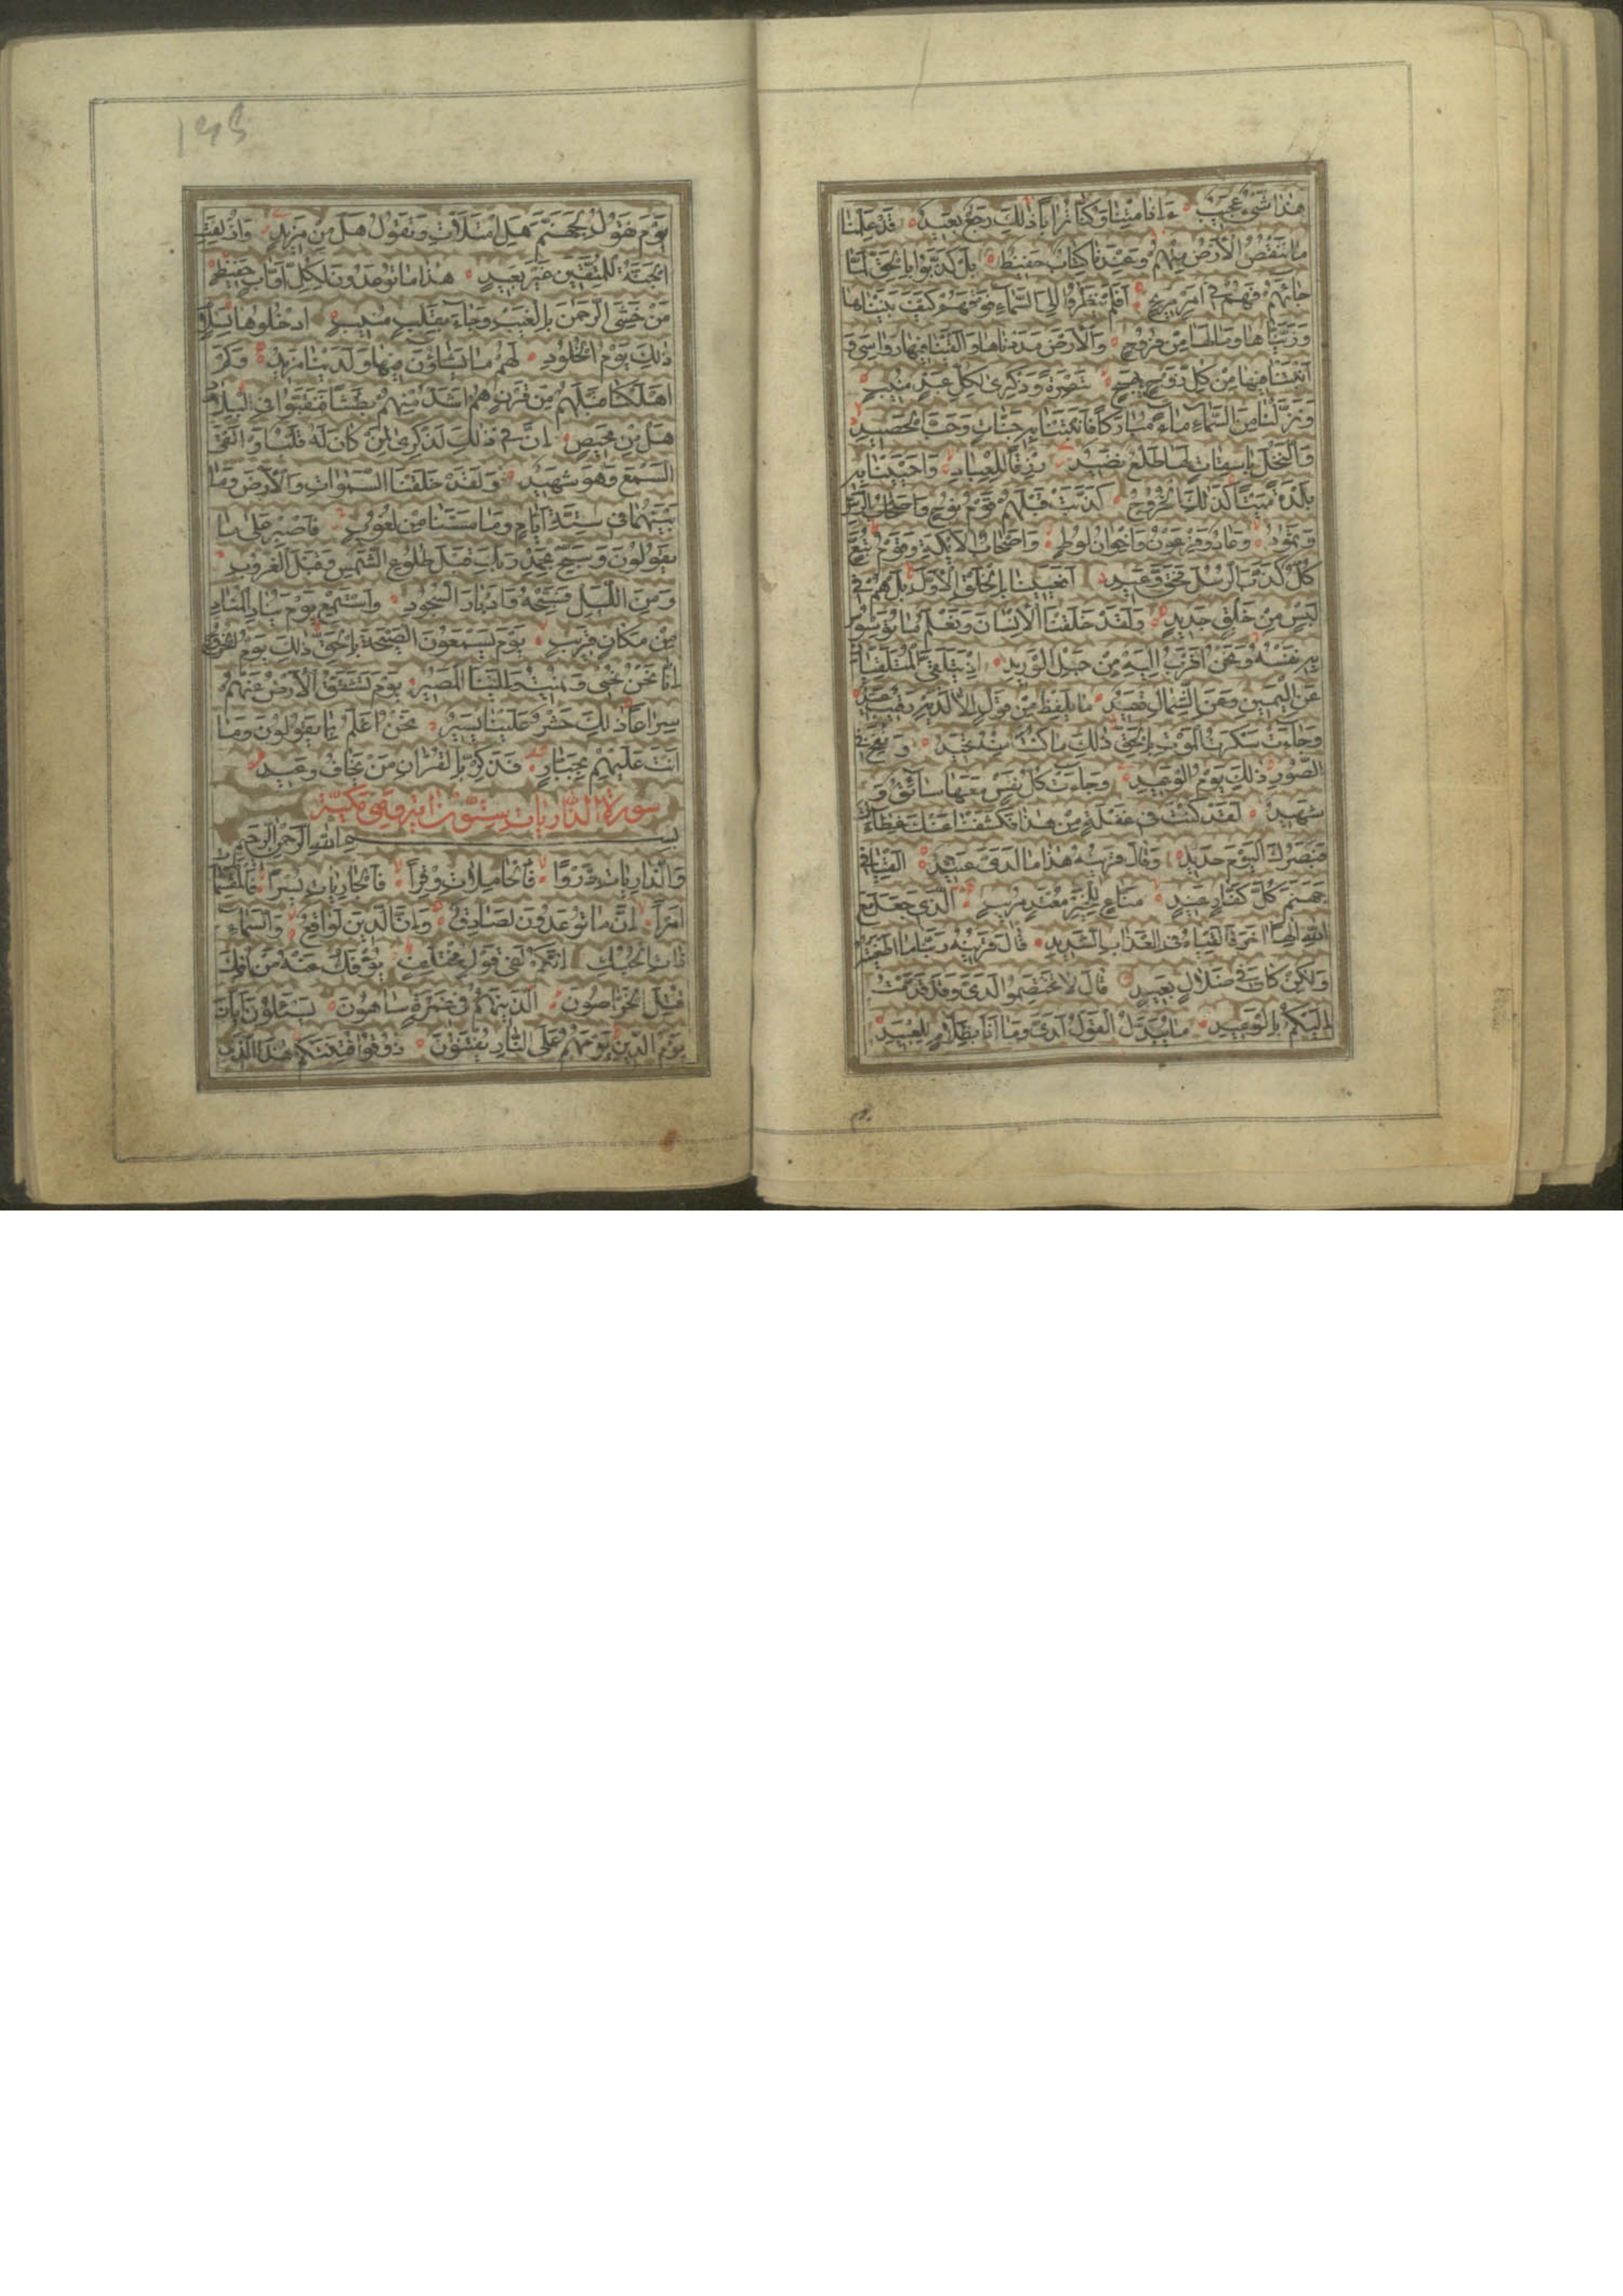 هٰذَا شَيْءٌ عَجِيبٌ ءَاِذَا مِتْنَا وَكُنَّا تُرَابًا ذٰلِكَ رَجْعٌ بَعِيدٌ قَدْ عَلِمْنَا
مَا تَنْقُصُ الْاَرْضُ مِنْهُمْ وَعِنْدَنَا كِتَابٌ حَفِيظٌ بَلْ كَذَّبُوا بِالْحَقِّ لَمَّا
جَاءَهُمْ فَهُمْ فِي اَمْرٍ مَرِيجٍ اَفَلَمْ يَنْظُرُوا اِلَى السَّمَاءِ فَوْقَهُمْ كَيْفَ بَنَيْنَاهَا
وَزَيَّنَّاهَا وَمَا لَهَا مِنْ فُرُوجٍ وَالْاَرْضَ مَدَدْنَاهَا وَاَلْقَيْنَا فِيهَا رَوَاسِيَ وَ
اَنْبَتْنَا فِيهَا مِنْ كُلِّ زَوْجٍ بَهِيجٍ تَبْصِرَةً وَذِكْرٰى لِكُلِّ عَبْدٍ مُنِيبٍ
وَنَزَّلْنَا مِنَ السَّمَاءِ مَاءً مُبَارَكًا فَاَنْبَتْنَا بِهِ جَنَّاتٍ وَحَبَّ الْحَصِيدِ
وَالنَّخْلَ بَاسِقَاتٍ لَهَا طَلْعٌ نَضِيدٌ رِزْقًا لِلْعِبَادِ وَاَحْيَيْنَا بِهِ
بَلْدَةً مَيْتًا كَذٰلِكَ الْخُرُوجُ كَذَّبَتْ قَبْلَهُمْ قَوْمُ نُوحٍ وَاَصْحَابُ الرَّسِّ
وَثَمُودُ وَعَادٌ وَفِرْعَوْنُ وَاِخْوَانُ لُوطٍ وَاَصْحَابُ الْاَيْكَةِ وَقَوْمُ تُبَّعٍ
كُلٌّ كَذَّبَ الرُّسُلَ فَحَقَّ وَعِيدِ اَفَعَيِينَا بِالْخَلْقِ الْاَوَّلِ بَلْ هُمْ فِي
لَبْسٍ مِنْ خَلْقٍ جَدِيدٍ وَلَقَدْ خَلَقْنَا الْاِنْسَانَ وَنَعْلَمُ مَا تُوَسْوِسُ
بِهِ نَفْسُهُ وَنَحْنُ اَقْرَبُ اِلَيْهِ مِنْ حَبْلِ الْوَرِيدِ اِذْ يَتَلَقَّى الْمُتَلَقِّيَانِ
عَنِ الْيَمِينِ وَعَنِ الشِّمَالِ قَعِيدٌ مَا يَلْفِظُ مِنْ قَوْلٍ اِلَّا لَدَيْهِ رَقِيبٌ عَتِيدٌ
وَجَاءَتْ سَكْرَةُ الْمَوْتِ بِالْحَقِّ ذٰلِكَ مَا كُنْتَ مِنْهُ تَحِيدُ وَنُفِخَ فِي
الصُّورِ ذٰلِكَ يَوْمُ الْوَعِيدِ وَجَاءَتْ كُلُّ نَفْسٍ مَعَهَا سَائِقٌ وَ
شَهِيدٌ لَقَدْ كُنْتَ فِي غَفْلَةٍ مِنْ هٰذَا فَكَشَفْنَا عَنْكَ غِطَاءَكَ
فَبَصَرُكَ الْيَوْمَ حَدِيدٌ وَقَالَ قَرِينُهُ هٰذَا مَا لَدَيَّ عَتِيدٌ اَلْقِيَا فِي
جَهَنَّمَ كُلَّ كَفَّارٍ عَنِيدٍ مَنَّاعٍ لِلْخَيْرِ مُعْتَدٍ مُرِيبٍ الَّذِي جَعَلَ مَعَ
اللّٰهِ اِلٰهًا اٰخَرَ فَاَلْقِيَاهُ فِي الْعَذَابِ الشَّدِيدِ قَالَ قَرِينُهُ رَبَّنَا مَا اَطْغَيْتُهُ
وَلٰكِنْ كَانَ فِي ضَلَالٍ بَعِيدٍ قَالَ لَا تَخْتَصِمُوا لَدَيَّ وَقَدْ قَدَّمْتُ
اِلَيْكُمْ بِالْوَعِيدِ مَا يُبَدَّلُ الْقَوْلُ لَدَيَّ وَمَا اَنَا بِظَلَّامٍ لِلْعَبِيدِ
يَوْمَ نَقُولُ لِجَهَنَّمَ هَلِ امْتَلَأْتِ وَتَقُولُ هَلْ مِنْ مَزِيدٍ وَاُزْلِفَتِ
الْجَنَّةُ لِلْمُتَّقِينَ غَيْرَ بَعِيدٍ هٰذَا مَا تُوعَدُونَ لِكُلِّ اَوَّابٍ حَفِيظٍ
مَنْ خَشِيَ الرَّحْمٰنَ بِالْغَيْبِ وَجَاءَ بِقَلْبٍ مُنِيبٍ ادْخُلُوهَا بِسَلَامٍ
ذٰلِكَ يَوْمُ الْخُلُودِ لَهُمْ مَا يَشَاؤُنَ فِيهَا وَلَدَيْنَا مَزِيدٌ وَكَمْ
اَهْلَكْنَا قَبْلَهُمْ مِنْ قَرْنٍ هُمْ اَشَدُّ مِنْهُمْ بَطْشًا فَنَقَّبُوا فِي الْبِلَادِ
هَلْ مِنْ مَحِيصٍ اِنَّ فِي ذٰلِكَ لَذِكْرٰى لِمَنْ كَانَ لَهُ قَلْبٌ اَوْ اَلْقَى
السَّمْعَ وَهُوَ شَهِيدٌ وَلَقَدْ خَلَقْنَا السَّمٰوَاتِ وَالْاَرْضَ وَمَا
بَيْنَهُمَا فِي سِتَّةِ اَيَّامٍ وَمَا مَسَّنَا مِنْ لُغُوبٍ فَاصْبِرْ عَلٰى مَا
يَقُولُونَ وَسَبِّحْ بِحَمْدِ رَبِّكَ قَبْلَ طُلُوعِ الشَّمْسِ وَقَبْلَ الْغُرُوبِ
وَمِنَ اللَّيْلِ فَسَبِّحْهُ وَاَدْبَارَ السُّجُودِ وَاسْتَمِعْ يَوْمَ يُنَادِ الْمُنَادِ
مِنْ مَكَانٍ قَرِيبٍ يَوْمَ يَسْمَعُونَ الصَّيْحَةَ بِالْحَقِّ ذٰلِكَ يَوْمُ الْخُرُوجِ
اِنَّا نَحْنُ نُحْيِي وَنُمِيتُ وَاِلَيْنَا الْمَصِيرُ يَوْمَ تَشَقَّقُ الْاَرْضُ عَنْهُمْ
سِرَاعًا ذٰلِكَ حَشْرٌ عَلَيْنَا يَسِيرٌ نَحْنُ اَعْلَمُ بِمَا يَقُولُونَ وَمَا
اَنْتَ عَلَيْهِمْ بِجَبَّارٍ فَذَكِّرْ بِالْقُرْاٰنِ مَنْ يَخَافُ وَعِيدِ
سورة الذاريات ستون اية وهى مكية
بِسْمِ اللّٰهِ الرَّحْمٰنِ الرَّحِيمِ
وَالذَّارِيَاتِ ذَرْوًا فَالْحَامِلَاتِ وِقْرًا فَالْجَارِيَاتِ يُسْرًا فَالْمُقَسِّمَاتِ
اَمْرًا اِنَّ مَا تُوعَدُونَ لَصَادِقٌ وَاِنَّ الدِّينَ لَوَاقِعٌ وَالسَّمَاءِ
ذَاتِ الْحُبُكِ اِنَّكُمْ لَفِي قَوْلٍ مُخْتَلِفٍ يُؤْفَكُ عَنْهُ مَنْ اُفِكَ
قُتِلَ الْخَرَّاصُونَ الَّذِينَ هُمْ فِي غَمْرَةٍ سَاهُونَ يَسْئَلُونَ اَيَّانَ
يَوْمُ الدِّينِ يَوْمَ هُمْ عَلَى النَّارِ يُفْتَنُونَ ذُوقُوا فِتْنَتَكُمْ هٰذَا الَّذِي